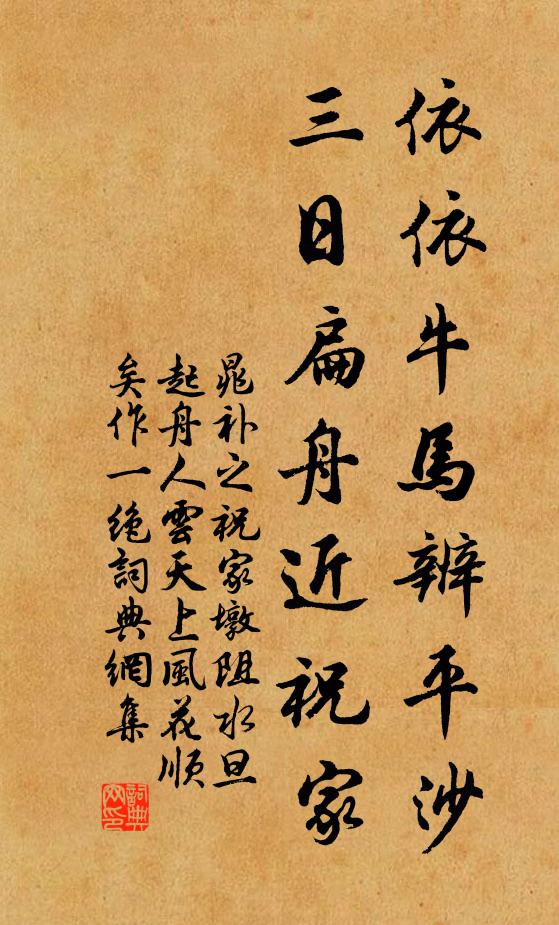 依依牛馬辨平沙
三日扁舟近祝家
晁补之祝家墩阻水旦
起舟人雲天上風花順
矣作一绝詞典網集
詞典網印